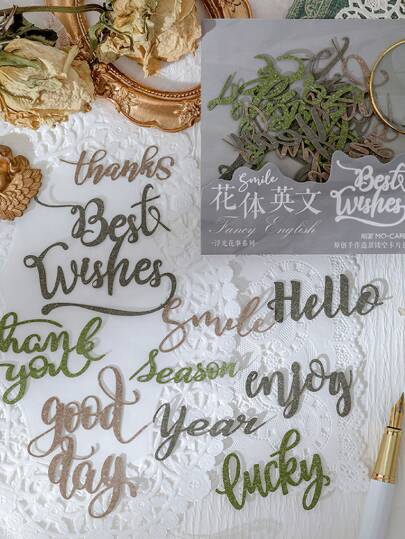 thanks
Best
Wishes
Smile
花体英文
Fancy English
Best
Wishes
MO·CARD
Smile
Hello
thank
you
season
enjoy
good
day
Year
lucky